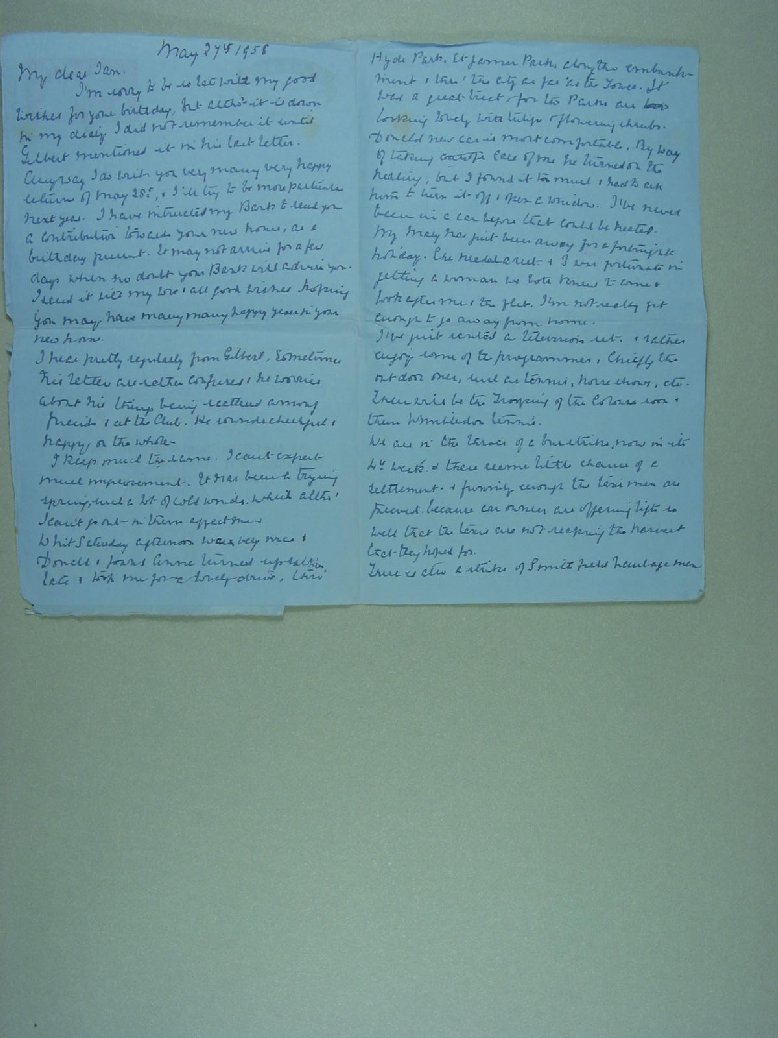 May 27th 1958
My dear Ian.
I'm sorry to be so late with my good
wishes for your birthday, but altho' it is down
in my diary I did not remember it until
Gilbert mentioned it in his last letter.
Anyway I do wish you very many very happy
returns of May 20th, & I'll try to be more particular
next year. I have instructed my Bank to send you
a contribution towards your new home, as a
birthday present. It may not arrive for a few
days when no doubt your Bank will advise you.
I send it with my love & all good wishes hoping
you may have many many happy years in your
new home.
I hear pretty regularly from Gilbert, sometimes
his letters are rather confused & he worries
about his things being scattered among
friends & at the Club. He sounds cheerful &
happy on the whole.
I keep much the same. I can't expect
much improvement. It has been a trying
spring, such a lot of cold winds which altho'
I can't go out in them affect me.
Whit Saturday afternoon was very nice &
Donald & Anne turned up
late & took me for a lovely drive, thro'
Hyde Park, St James Park, along the embank-
ment & thro' the city as far as the Tower. It
was a great treat for the Parks are
looking lovely with tulips & flowering shrubs.
Donald's new car is most comfortable. By way
of taking care of me he turned on the
heating, but I found it too much & had to ask
him to turn it off & open a window. I've never
been in a car before that could be heated.
My Mary has just been away for a fortnight's
holiday. She needed a rest & I was fortunate in
getting a woman we both knew to come &
look after me & the flat. I'm not really fit
enough to go away from home.
I've just rented a television set & rather
enjoy some of the programmes, chiefly the
out door ones, such as tennis, horse shows, etc.
There will be the Trooping of the Colour soon &
then Wimbledon tennis.
We are in the throes of a bus strike, now in its
4th week & there seems little chance of a
settlement & funnily enough the taxi men are
grieved because car owners are offering lifts so
well that the taxis are not reaping the harvest
that they hoped for.
There is also a strike of Smithfield haulage men